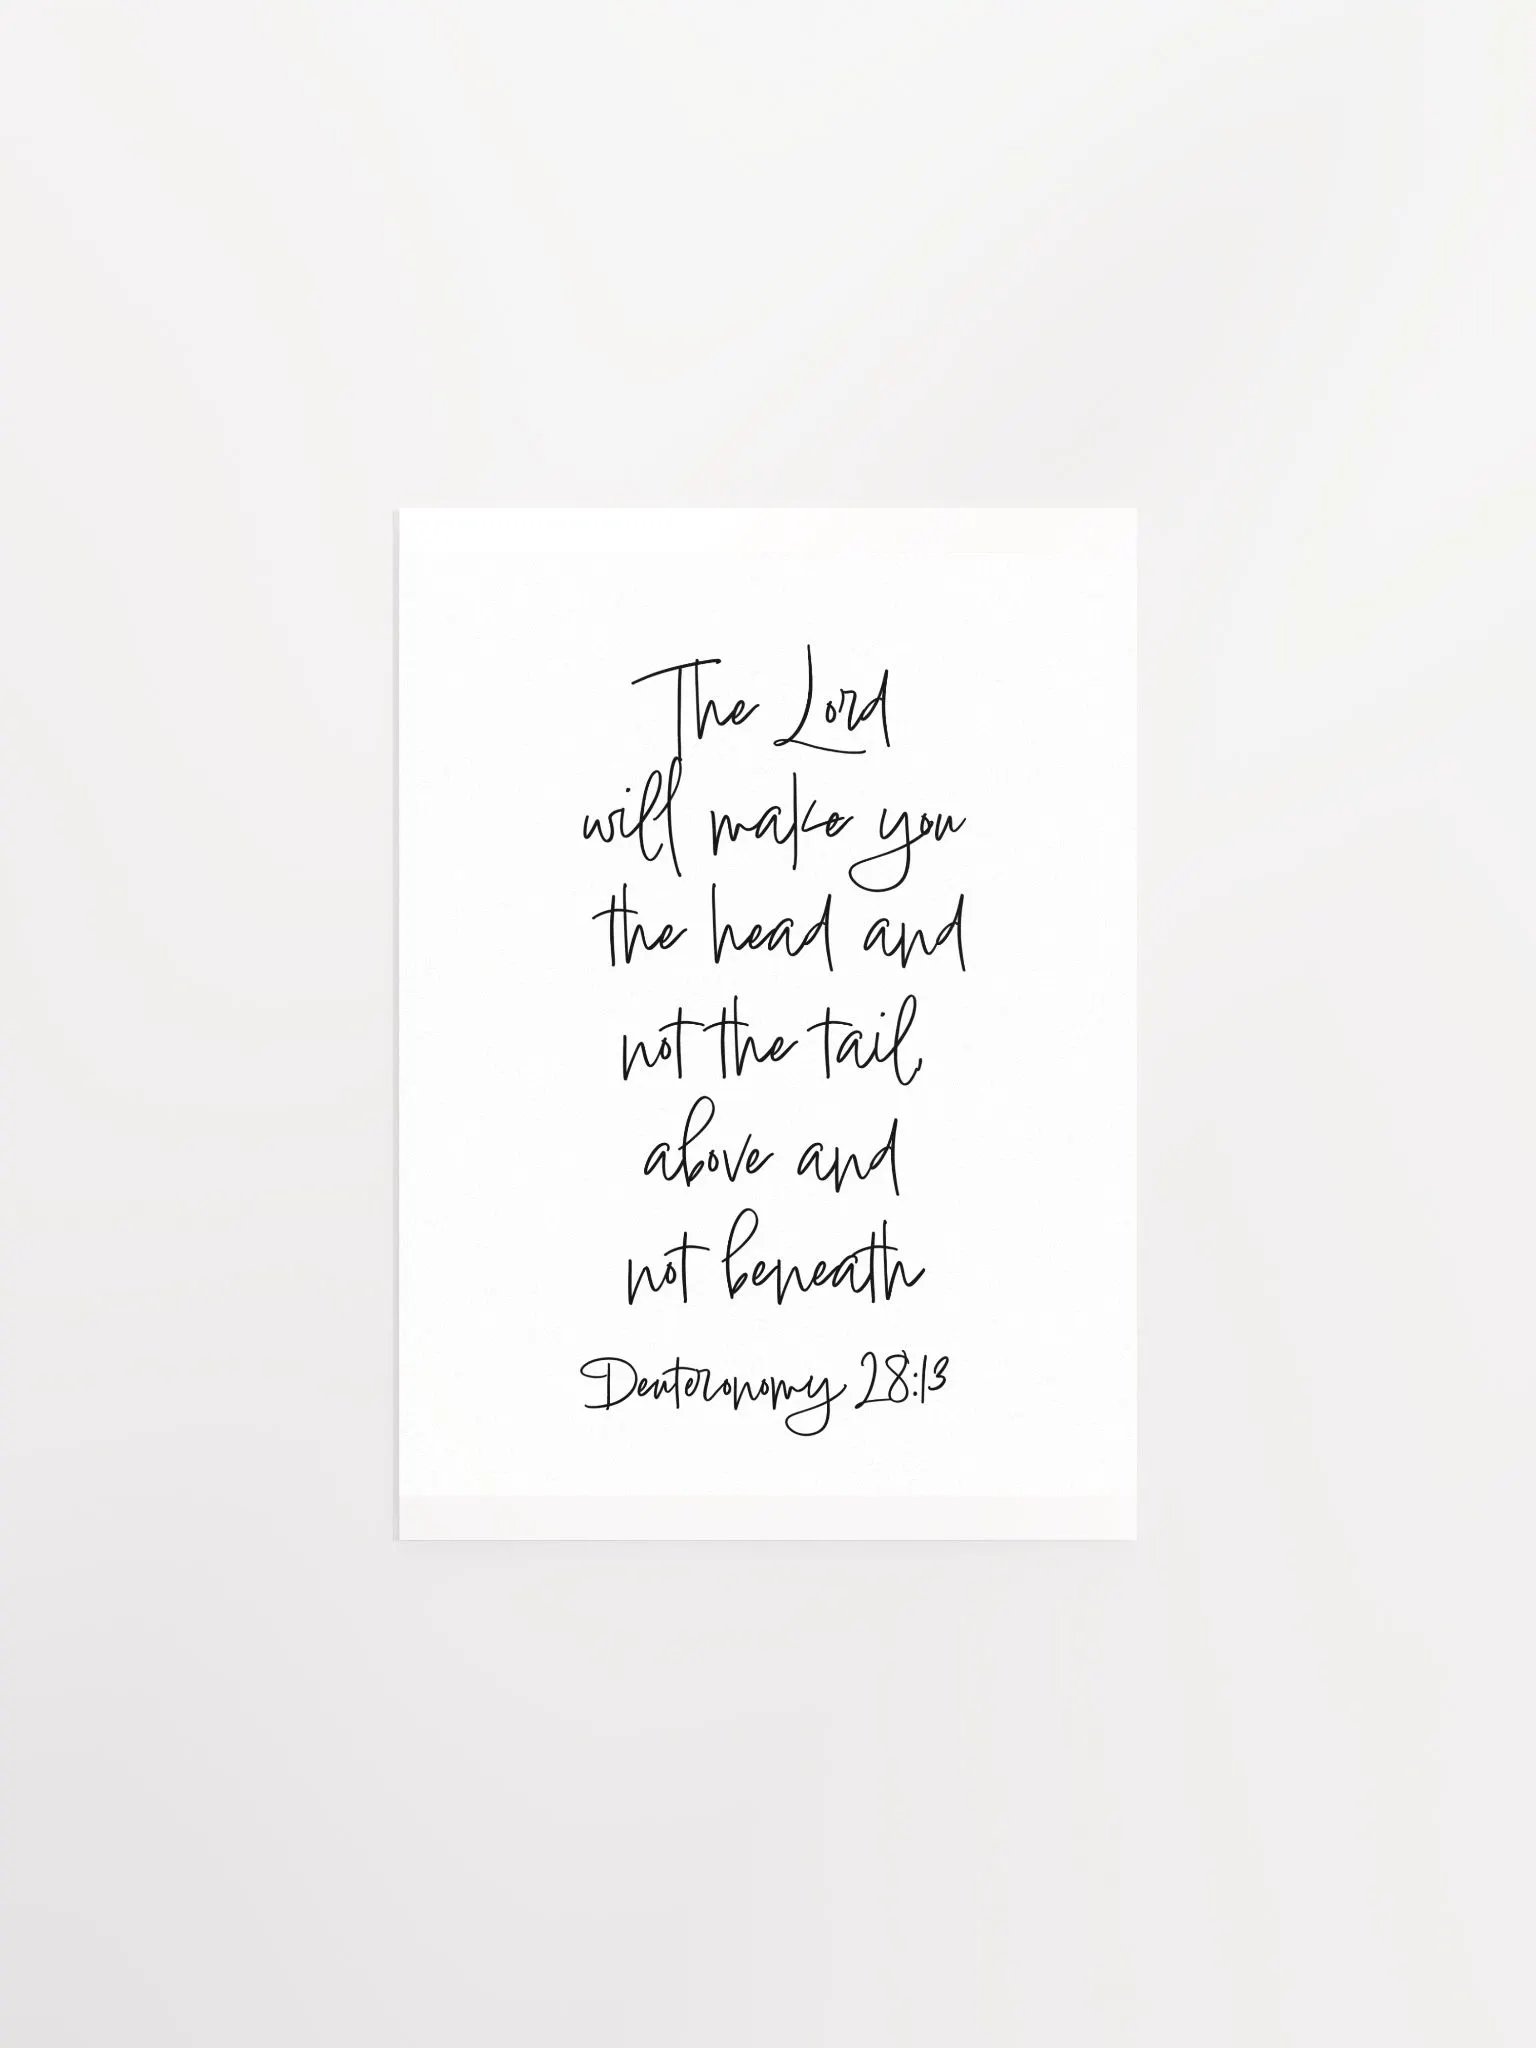 The Lord
will make you
the head and
not the tail,
above and
not beneath
Deuteronomy 28:13